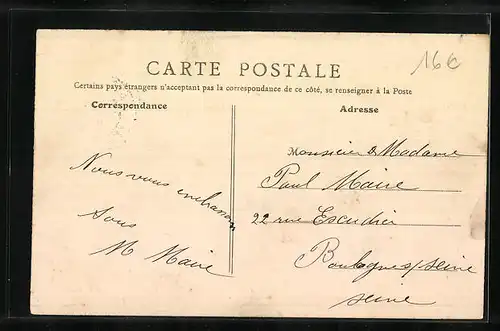 16€
CARTE POSTALE
Certains pays étrangers n'acceptant pas la correspondance de ce côté, se renseigner à la Poste
Correspondance
Nous vous embrassons
Tous
M Maire
Adresse
Monsieur & Madame
Paul Maire
22 rue Escudier
Boulogne s/ seine
seine